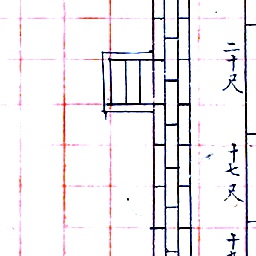 二十尺
十七尺